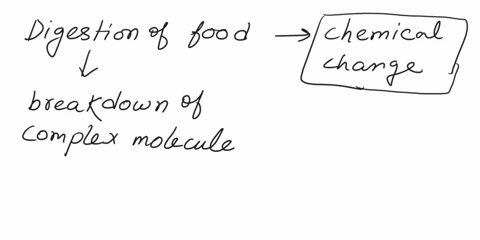 Digestion of food → chemical
change
↓
breakdown of
complex molecule